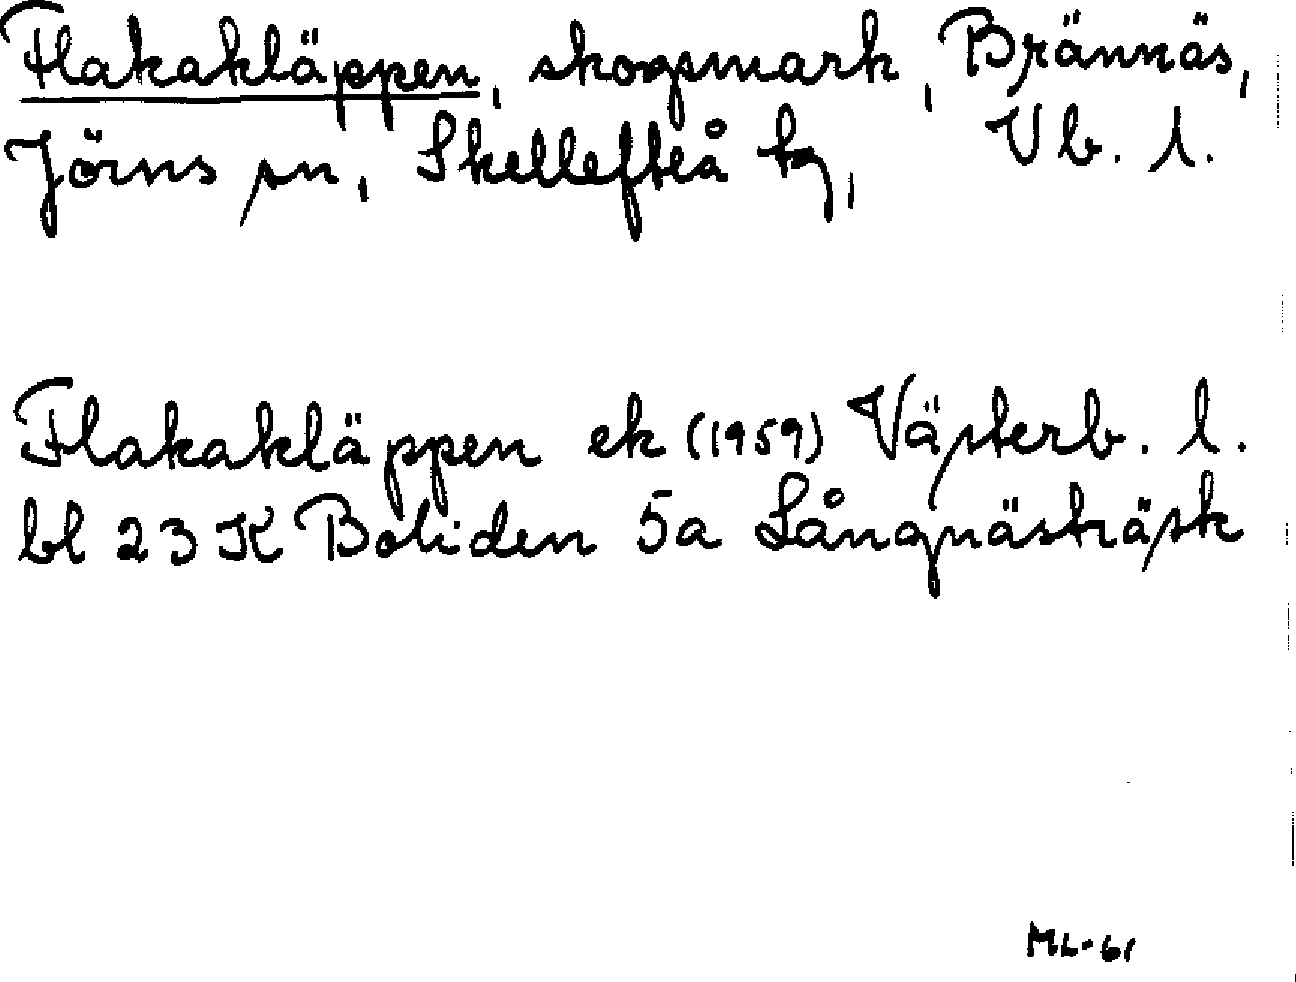 Flakakläppen, skogsmark, Brännäs,
Jörns sn, Skellefteå tg, Vb. l.
Flakakläppen ek (1959) Västerb. l.
bl 23 K Boliden 5a Långnästräsk
ML-61